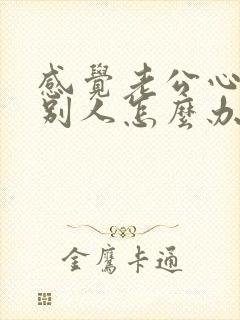 感覺老公心
別人怎麼办
金鷹卡通